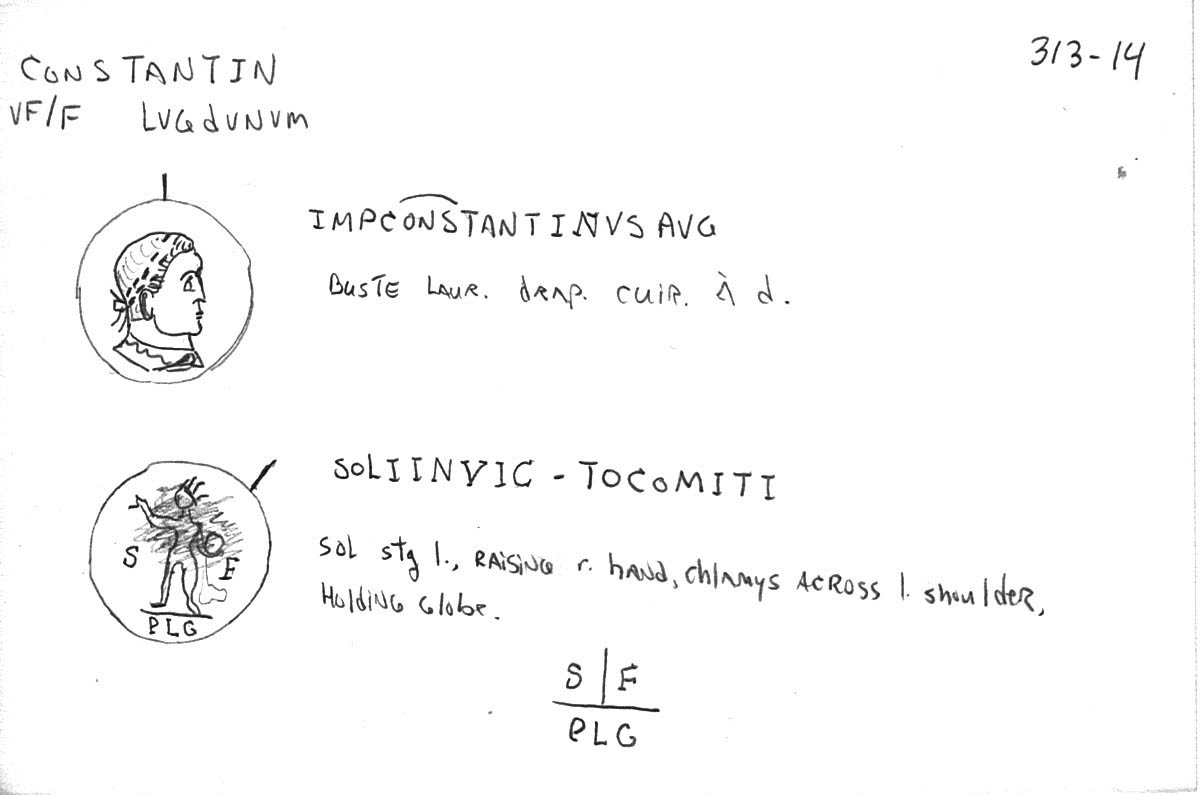 CONSTANTIN
313-14
VF/F LUGdUNUM
IMPCONSTANTINVS AVG
BUSTE LAUR. drAp. CUIR. À d.
SOLIINVIC - TOCOMITI
S F
PLG
SOL stg l., RAISING r. hANd, chlAmys ACROSS l. shoulder,
HoldiNG Globe.
S F
PLG